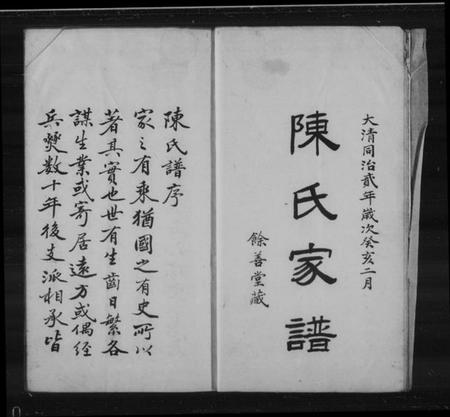 大清同治貳年歲次癸亥二月
陳氏家譜
餘善堂藏
陳氏譜序
家之有乘猶國之有史所以
著其實也世有生齒日繁各
謀生業或寄居遠方或偶經
兵燹数十年後支派相承皆